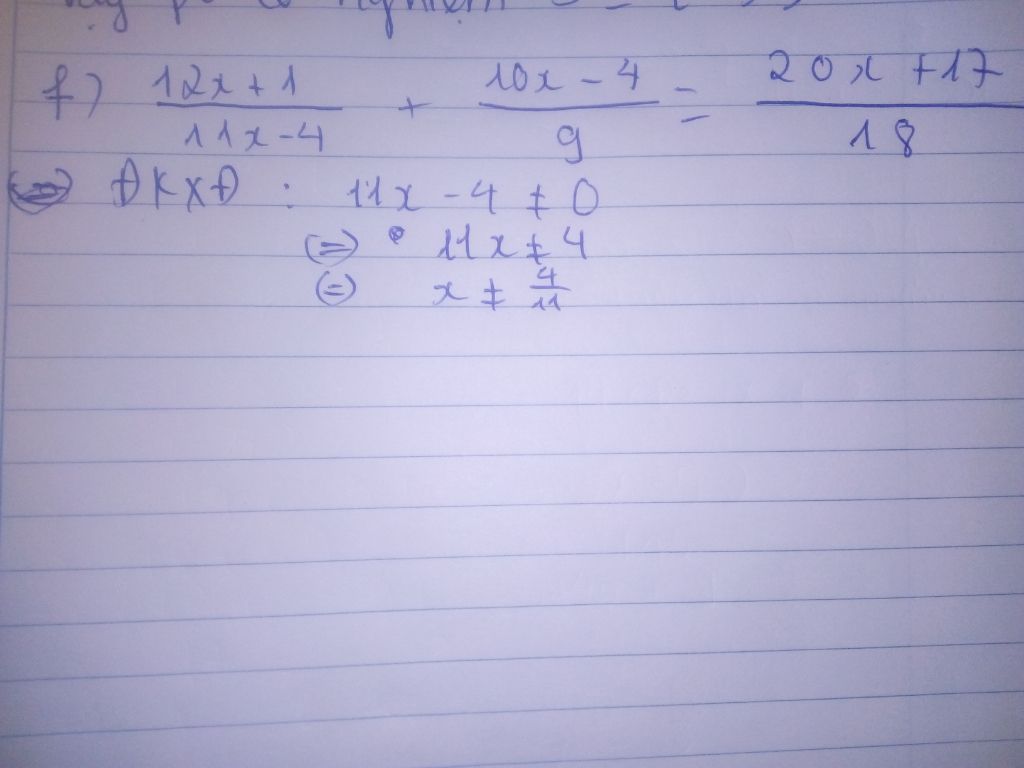 f) \frac{12x+1}{11x-4} + \frac{10x-4}{9} = \frac{20x+17}{18}
ĐKXĐ : 11x - 4 ≠ 0
(=) 11x ≠ 4
(=) x ≠ \frac{4}{11}